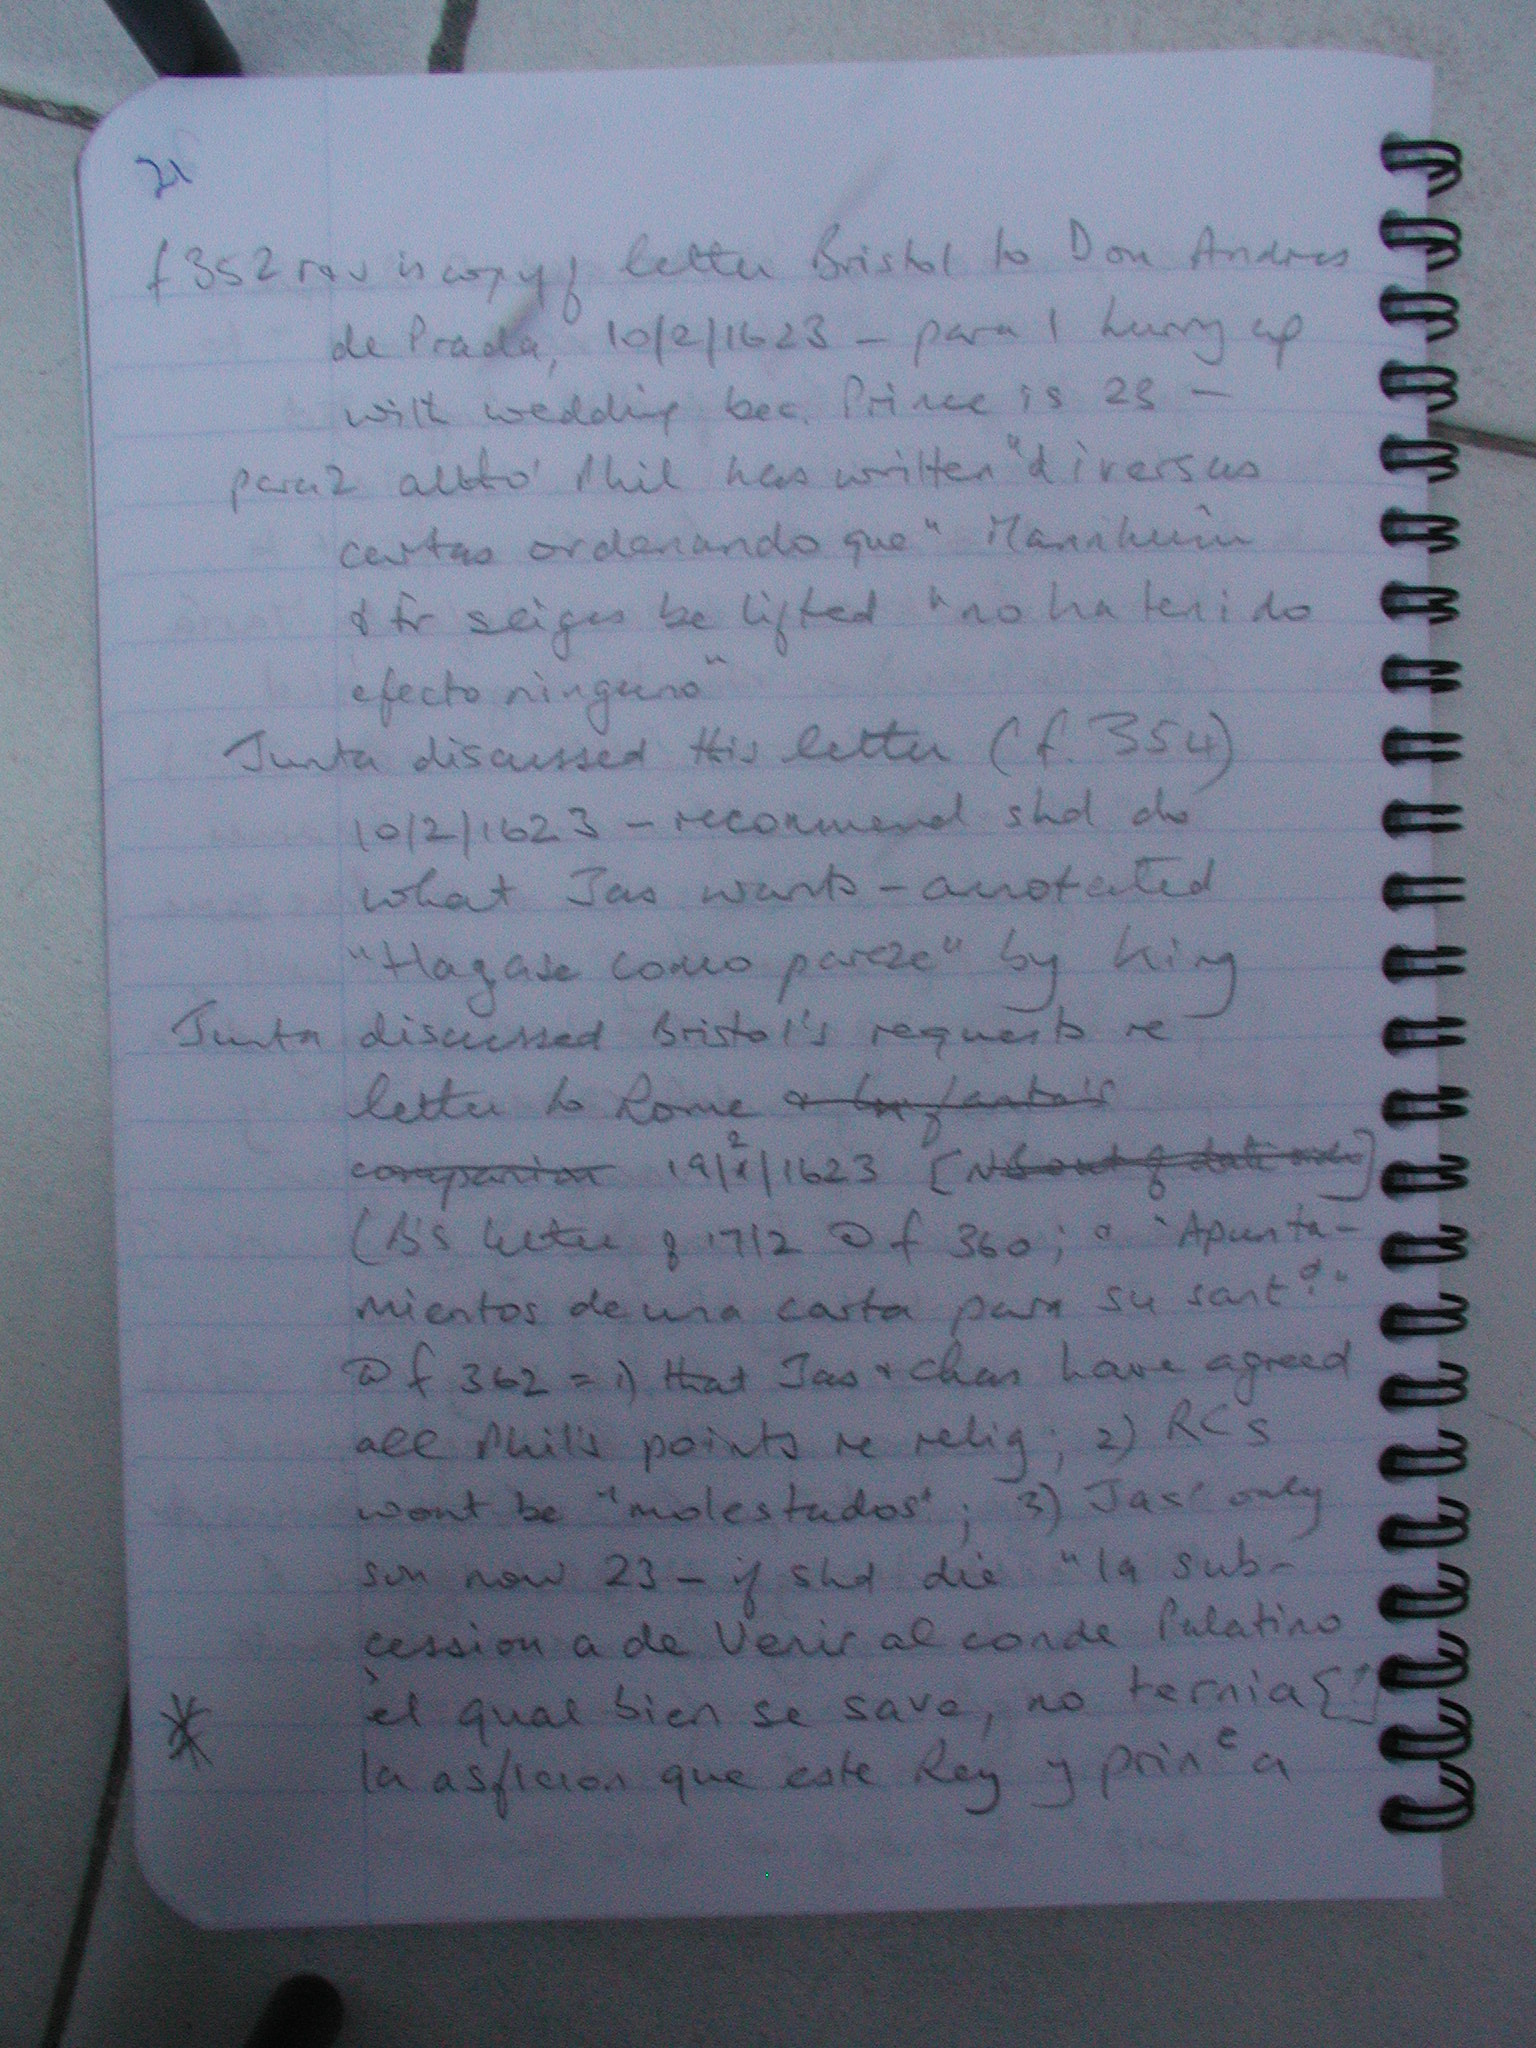 21
f 352 rev is copy of letter Bristol to Don Andres
de Prada, 10/2/1623 – para 1 hurry up
with wedding bec. Prince is 23 –
para 2 altho' Phil has written "diversas
cartas ordenando que" Mannheim
& Fr seiges be lifted "no ha tenido
efecto ninguno"
Junta discussed this letter (f. 354)
10/2/1623 – recommend shd do
what Jas wants – annotated
"Hagase como pareze" by King
Junta discussed Bristol's requests re
letter to Rome & Infanta's
companion 19/2/1623 [NB out of date order]
(B's letter of 17/2 @ f 360; & "Apunta-
mientos de una carta para su santd"
@ f 362 = 1) that Jas & Chas have agreed
all Phil's points re relig; 2) RCs
wont be "molestados"; 3) Jas' only
son now 23 – if shd die "la sub-
cession a de venir al conde Palatino
el qual bien se save, no ternia [!]
la asficion que este Rey y prince a